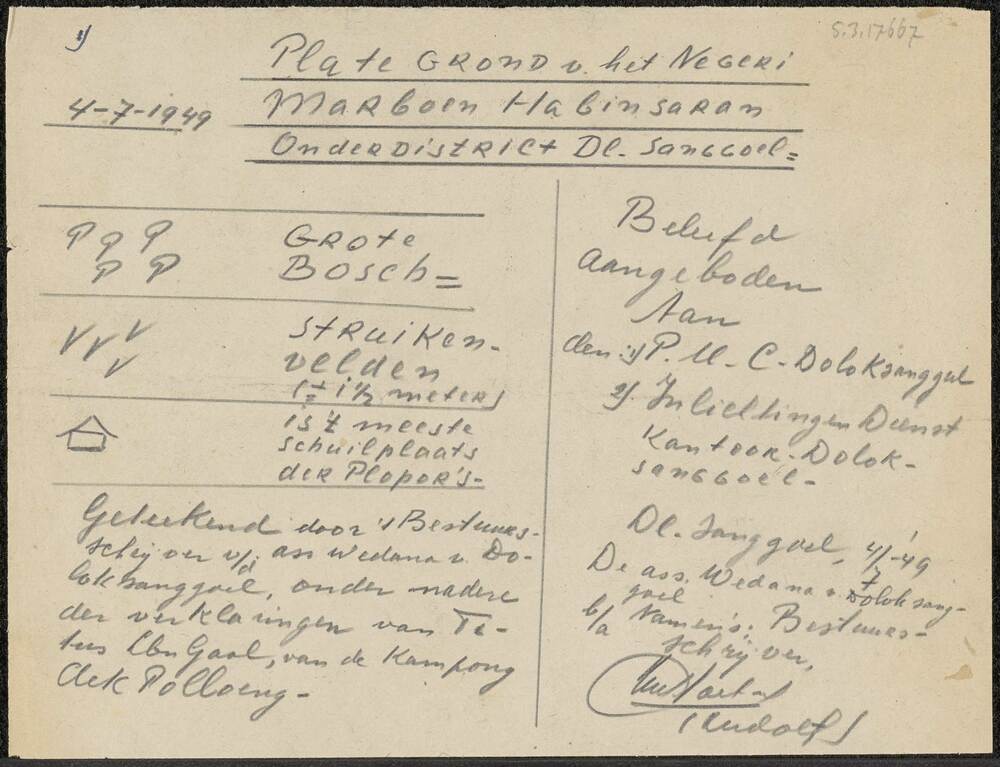 1)
S.3.17667
Plate GROND v. het NEGERI
4-7-1949
MARBOEN HabinsaRan
OndeRDistRict Dl. Sanggoel=
GROte
BOSCh=
StRuiken-
velden
(± 1 ½ meters)
is 't meeste
schuilplaats
deR Plopor's-
Geteekend door 's Bestuurs-
schrijver v/d. ass Wedana v. Do-
loksanggoel, onder nadere
der verklaringen van Ti-
tus Gaol, van de Kampong
Aek Polloeng-
Beleefd
aangeboden
Aan
den: 1) P.M.C. Doloksanggul
2). Inlichtingen Dienst
Kantoor-Dolok-
sanggoel-
Dl. Sanggoel, 4/7-'49
De ass. Wedana v. Doloksang-
goel
b/a Namens: Bestuurs-
schrijver,
(Rudolf)